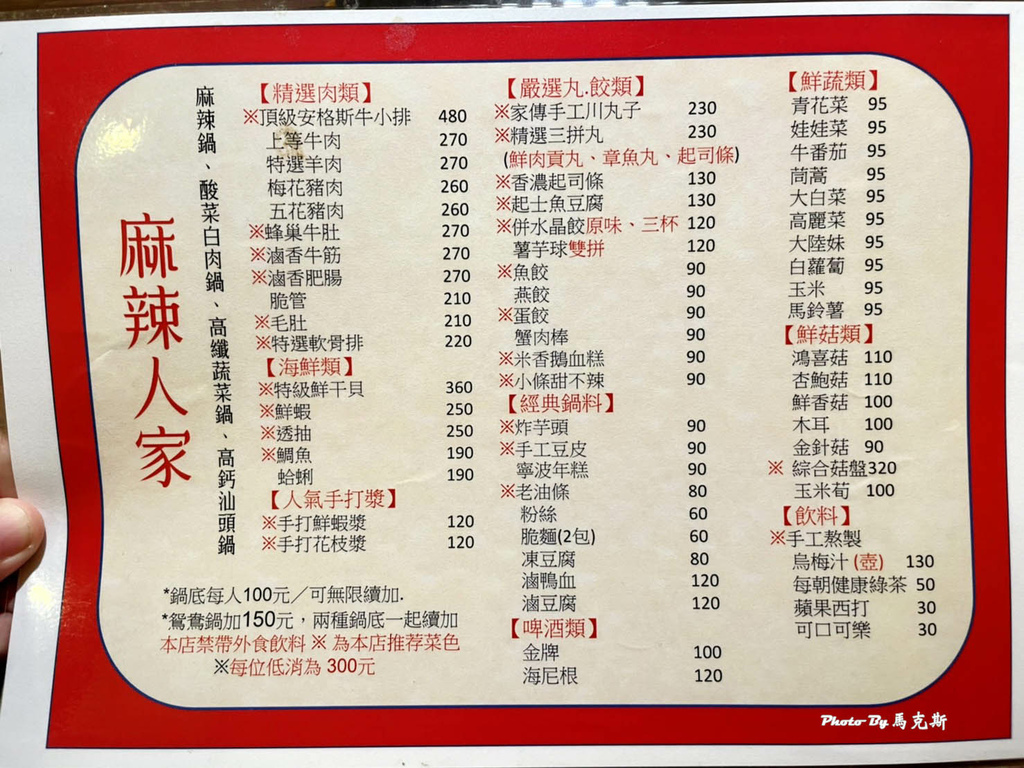 麻辣人家
麻辣鍋、酸菜白肉鍋、高纖蔬菜鍋、高鈣汕頭鍋
【精選肉類】
※頂級安格斯牛小排 480
上等牛肉 270
特選羊肉 270
梅花豬肉 260
五花豬肉 260
※蜂巢牛肚 270
※滷香牛筋 270
※滷香肥腸 270
脆管 210
※毛肚 210
※特選軟骨排 220
【海鮮類】
※特級鮮干貝 360
※鮮蝦 250
※透抽 250
※鯛魚 190
蛤蜊 190
【人氣手打漿】
※手打鮮蝦漿 120
※手打花枝漿 120
*鍋底每人100元／可無限續加.
*鴛鴦鍋加150元，兩種鍋底一起續加
本店禁帶外食飲料 ※ 為本店推荐菜色
※每位低消為 300元
【嚴選丸.餃類】
※家傳手工川丸子 230
※精選三拼丸 230
(鮮肉貢丸、章魚丸、起司條)
※香濃起司條 130
※起士魚豆腐 130
※併水晶餃原味、三杯 120
薯芋球雙拼 120
※魚餃 90
燕餃 90
※蛋餃 90
蟹肉棒 90
※米香鵝血糕 90
※小條甜不辣 90
【經典鍋料】
※炸芋頭 90
※手工豆皮 90
寧波年糕 90
※老油條 80
粉絲 60
脆麵(2包) 60
凍豆腐 80
滷鴨血 120
滷豆腐 120
【啤酒類】
金牌 100
海尼根 120
【鮮蔬類】
青花菜 95
娃娃菜 95
牛番茄 95
茼蒿 95
大白菜 95
高麗菜 95
大陸妹 95
白蘿蔔 95
玉米 95
馬鈴薯 95
【鮮菇類】
鴻喜菇 110
杏鮑菇 110
鮮香菇 100
木耳 100
金針菇 90
※ 綜合菇盤320
玉米荀 100
【飲料】
※手工熬製
烏梅汁 (壺) 130
每朝健康綠茶 50
蘋果西打 30
可口可樂 30
Photo By 馬克斯